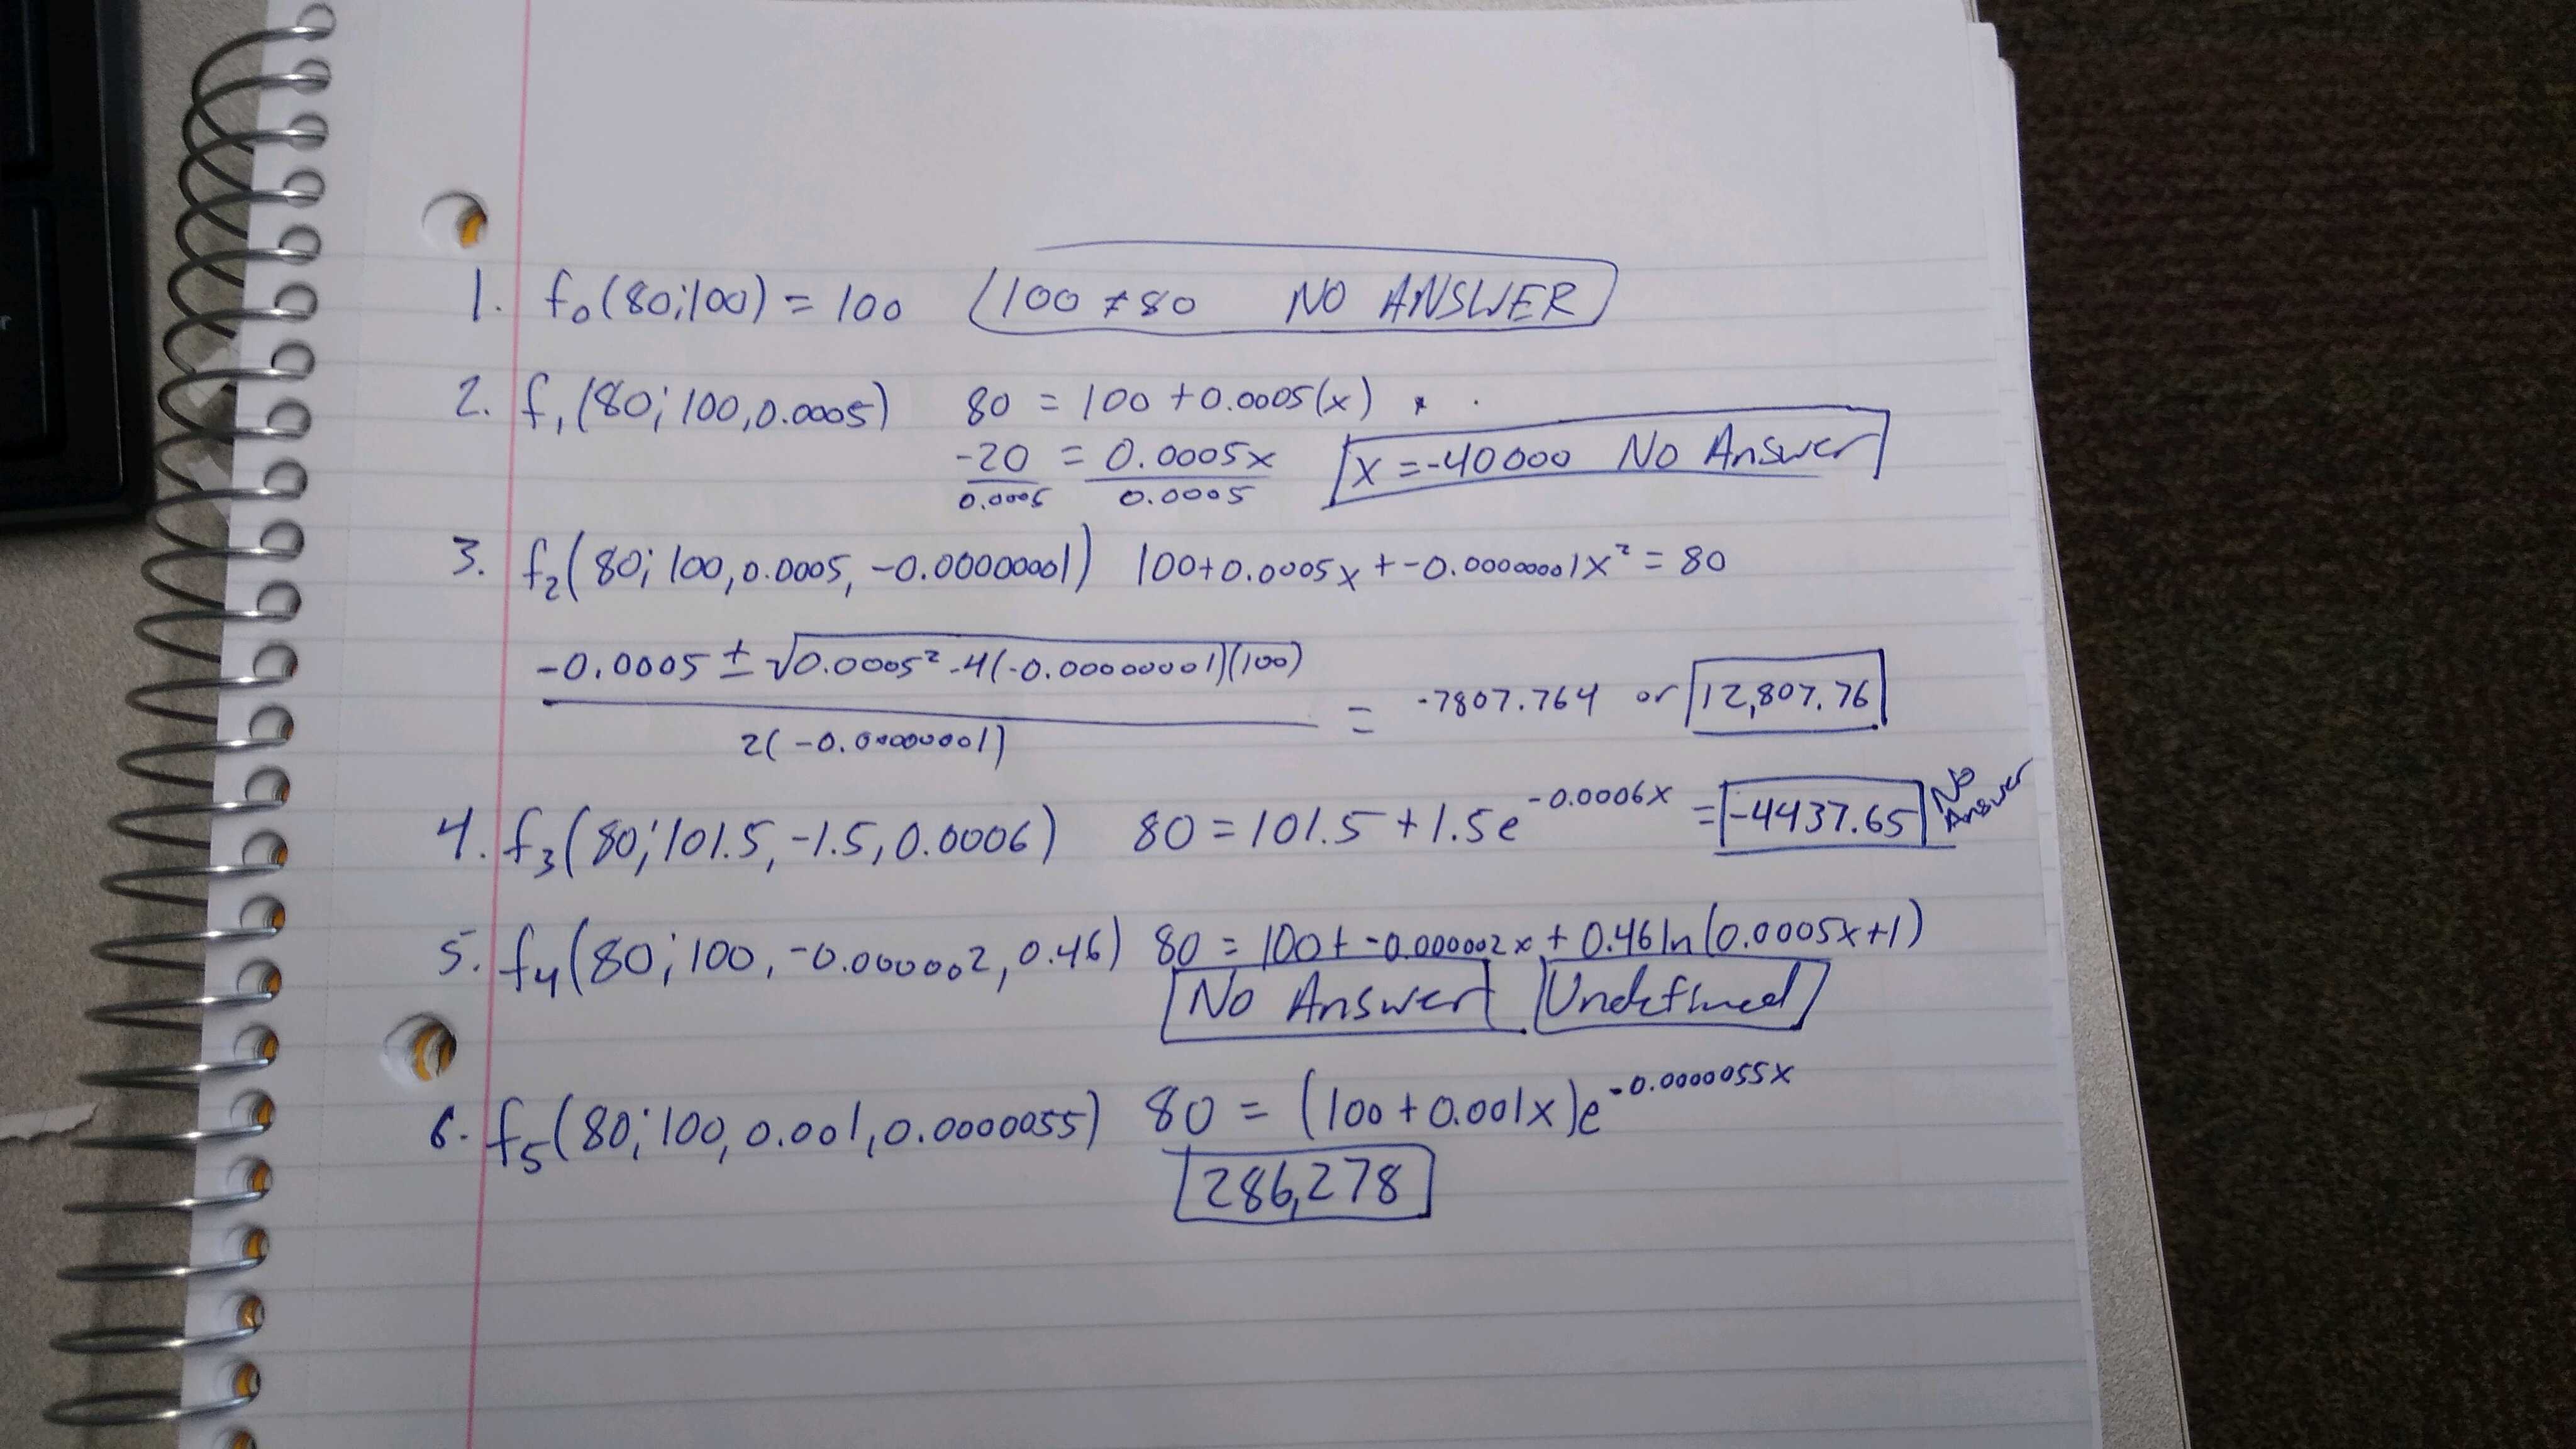 1. f₀(80;100) = 100 100 ≠ 80 NO ANSWER
2. f₁(80; 100, 0.0005) 80 = 100 + 0.0005(x)
-20 = 0.0005x x = -40000 No Answer
0.0005 0.0005
3. f₂(80; 100, 0.0005, -0.00000001) 100+0.0005x + -0.00000001x² = 80
-0.0005 ± √0.0005² - 4(-0.00000001)(100)
= -7807.764 or 12,807.76
2(-0.00000001)
4. f₃(80; 101.5, -1.5, 0.0006) 80 = 101.5 + 1.5e^-0.0006x = -4437.65 No Answer
5. f₄(80; 100, -0.000002, 0.46) 80 = 100 + -0.000002x + 0.46 ln(0.0005x+1)
No Answer Undefined
6. f₅(80; 100, 0.001, 0.0000055) 80 = (100 + 0.001x)e^-0.0000055x
286,278